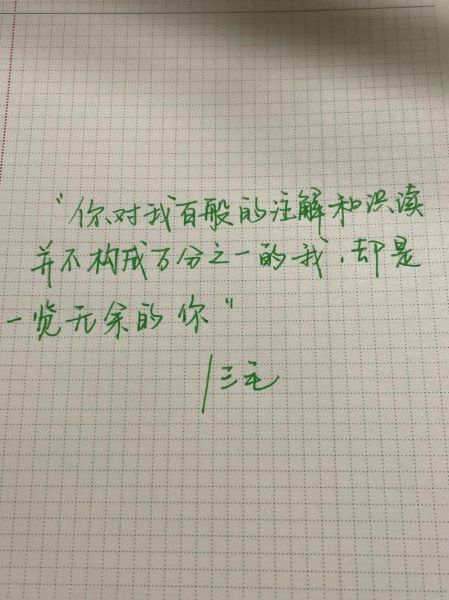 “你对我百般的注解和识读
并不构成万分之一的我，却是
一览无余的你”
/三毛